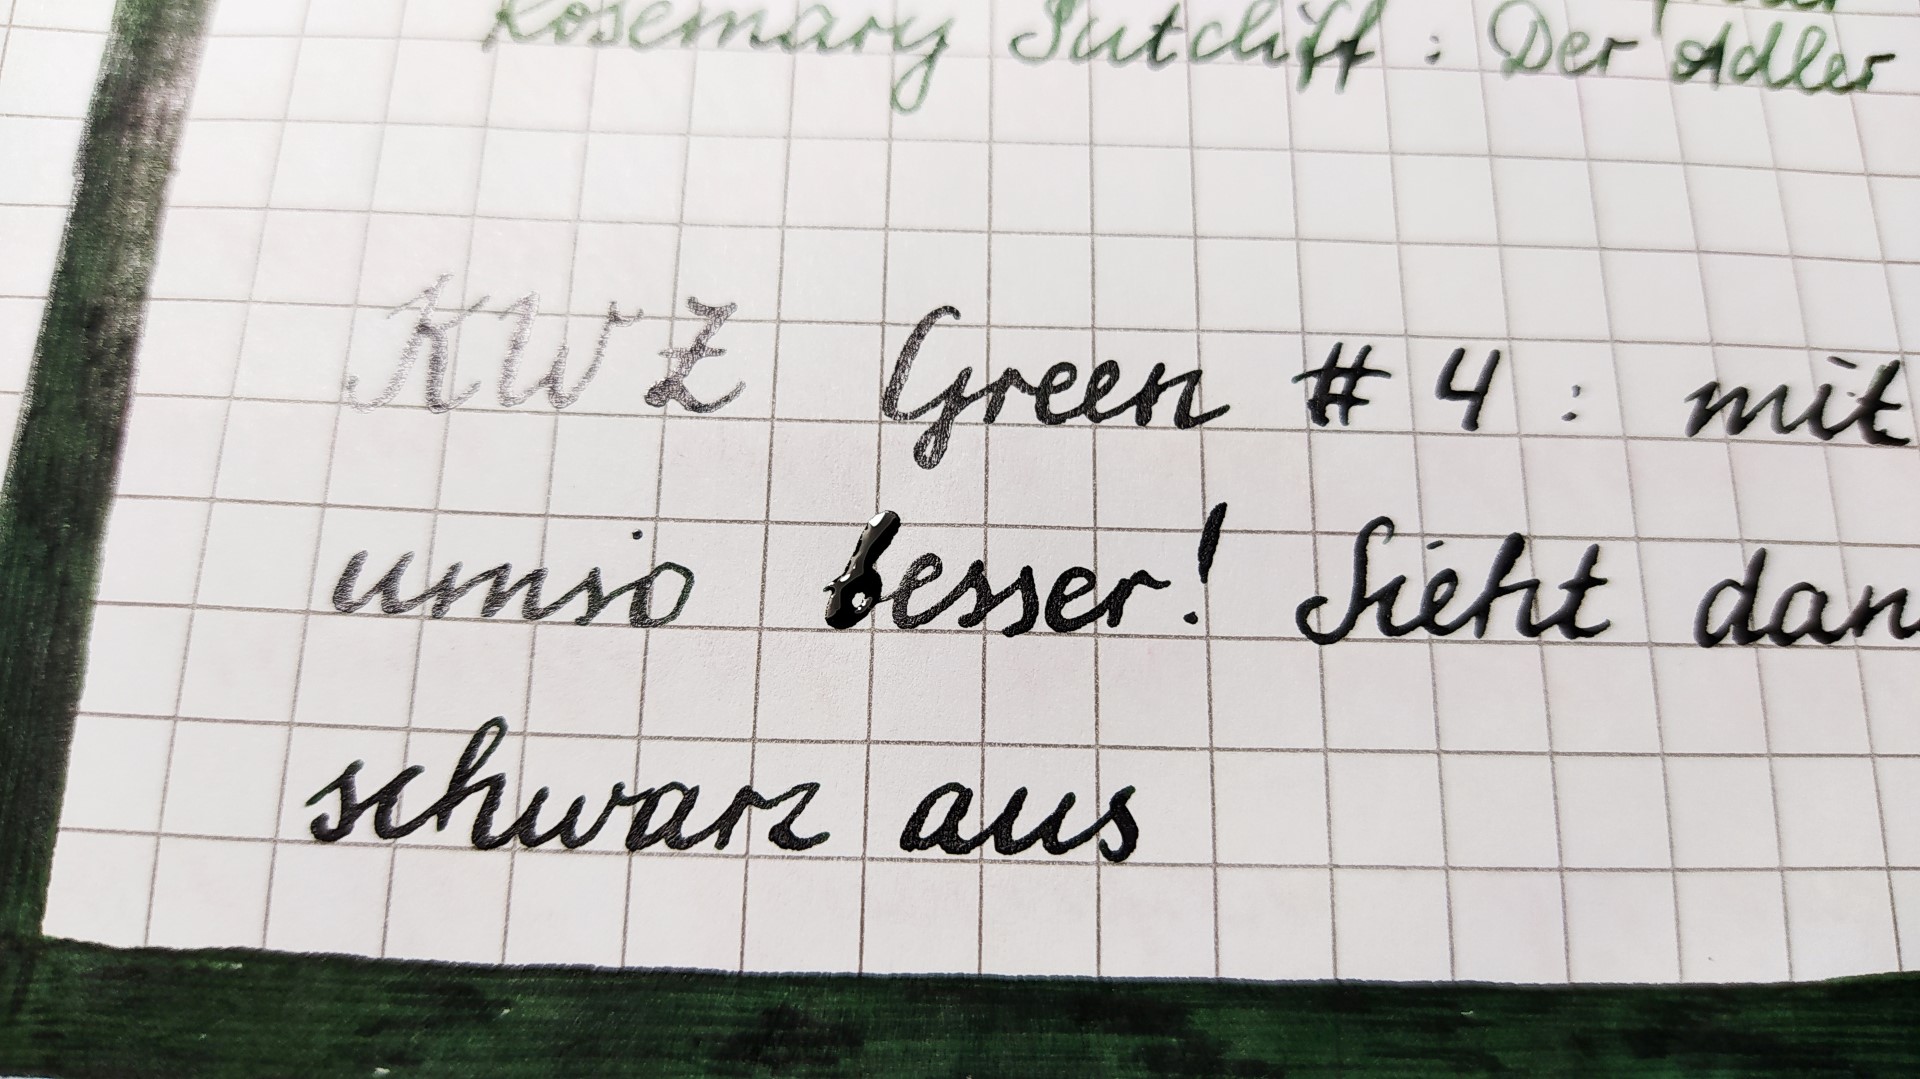 Rosemary Sutcliff : Der Adler
KWZ Green # 4 : mit
umso besser! Sieht dan
schwarz aus